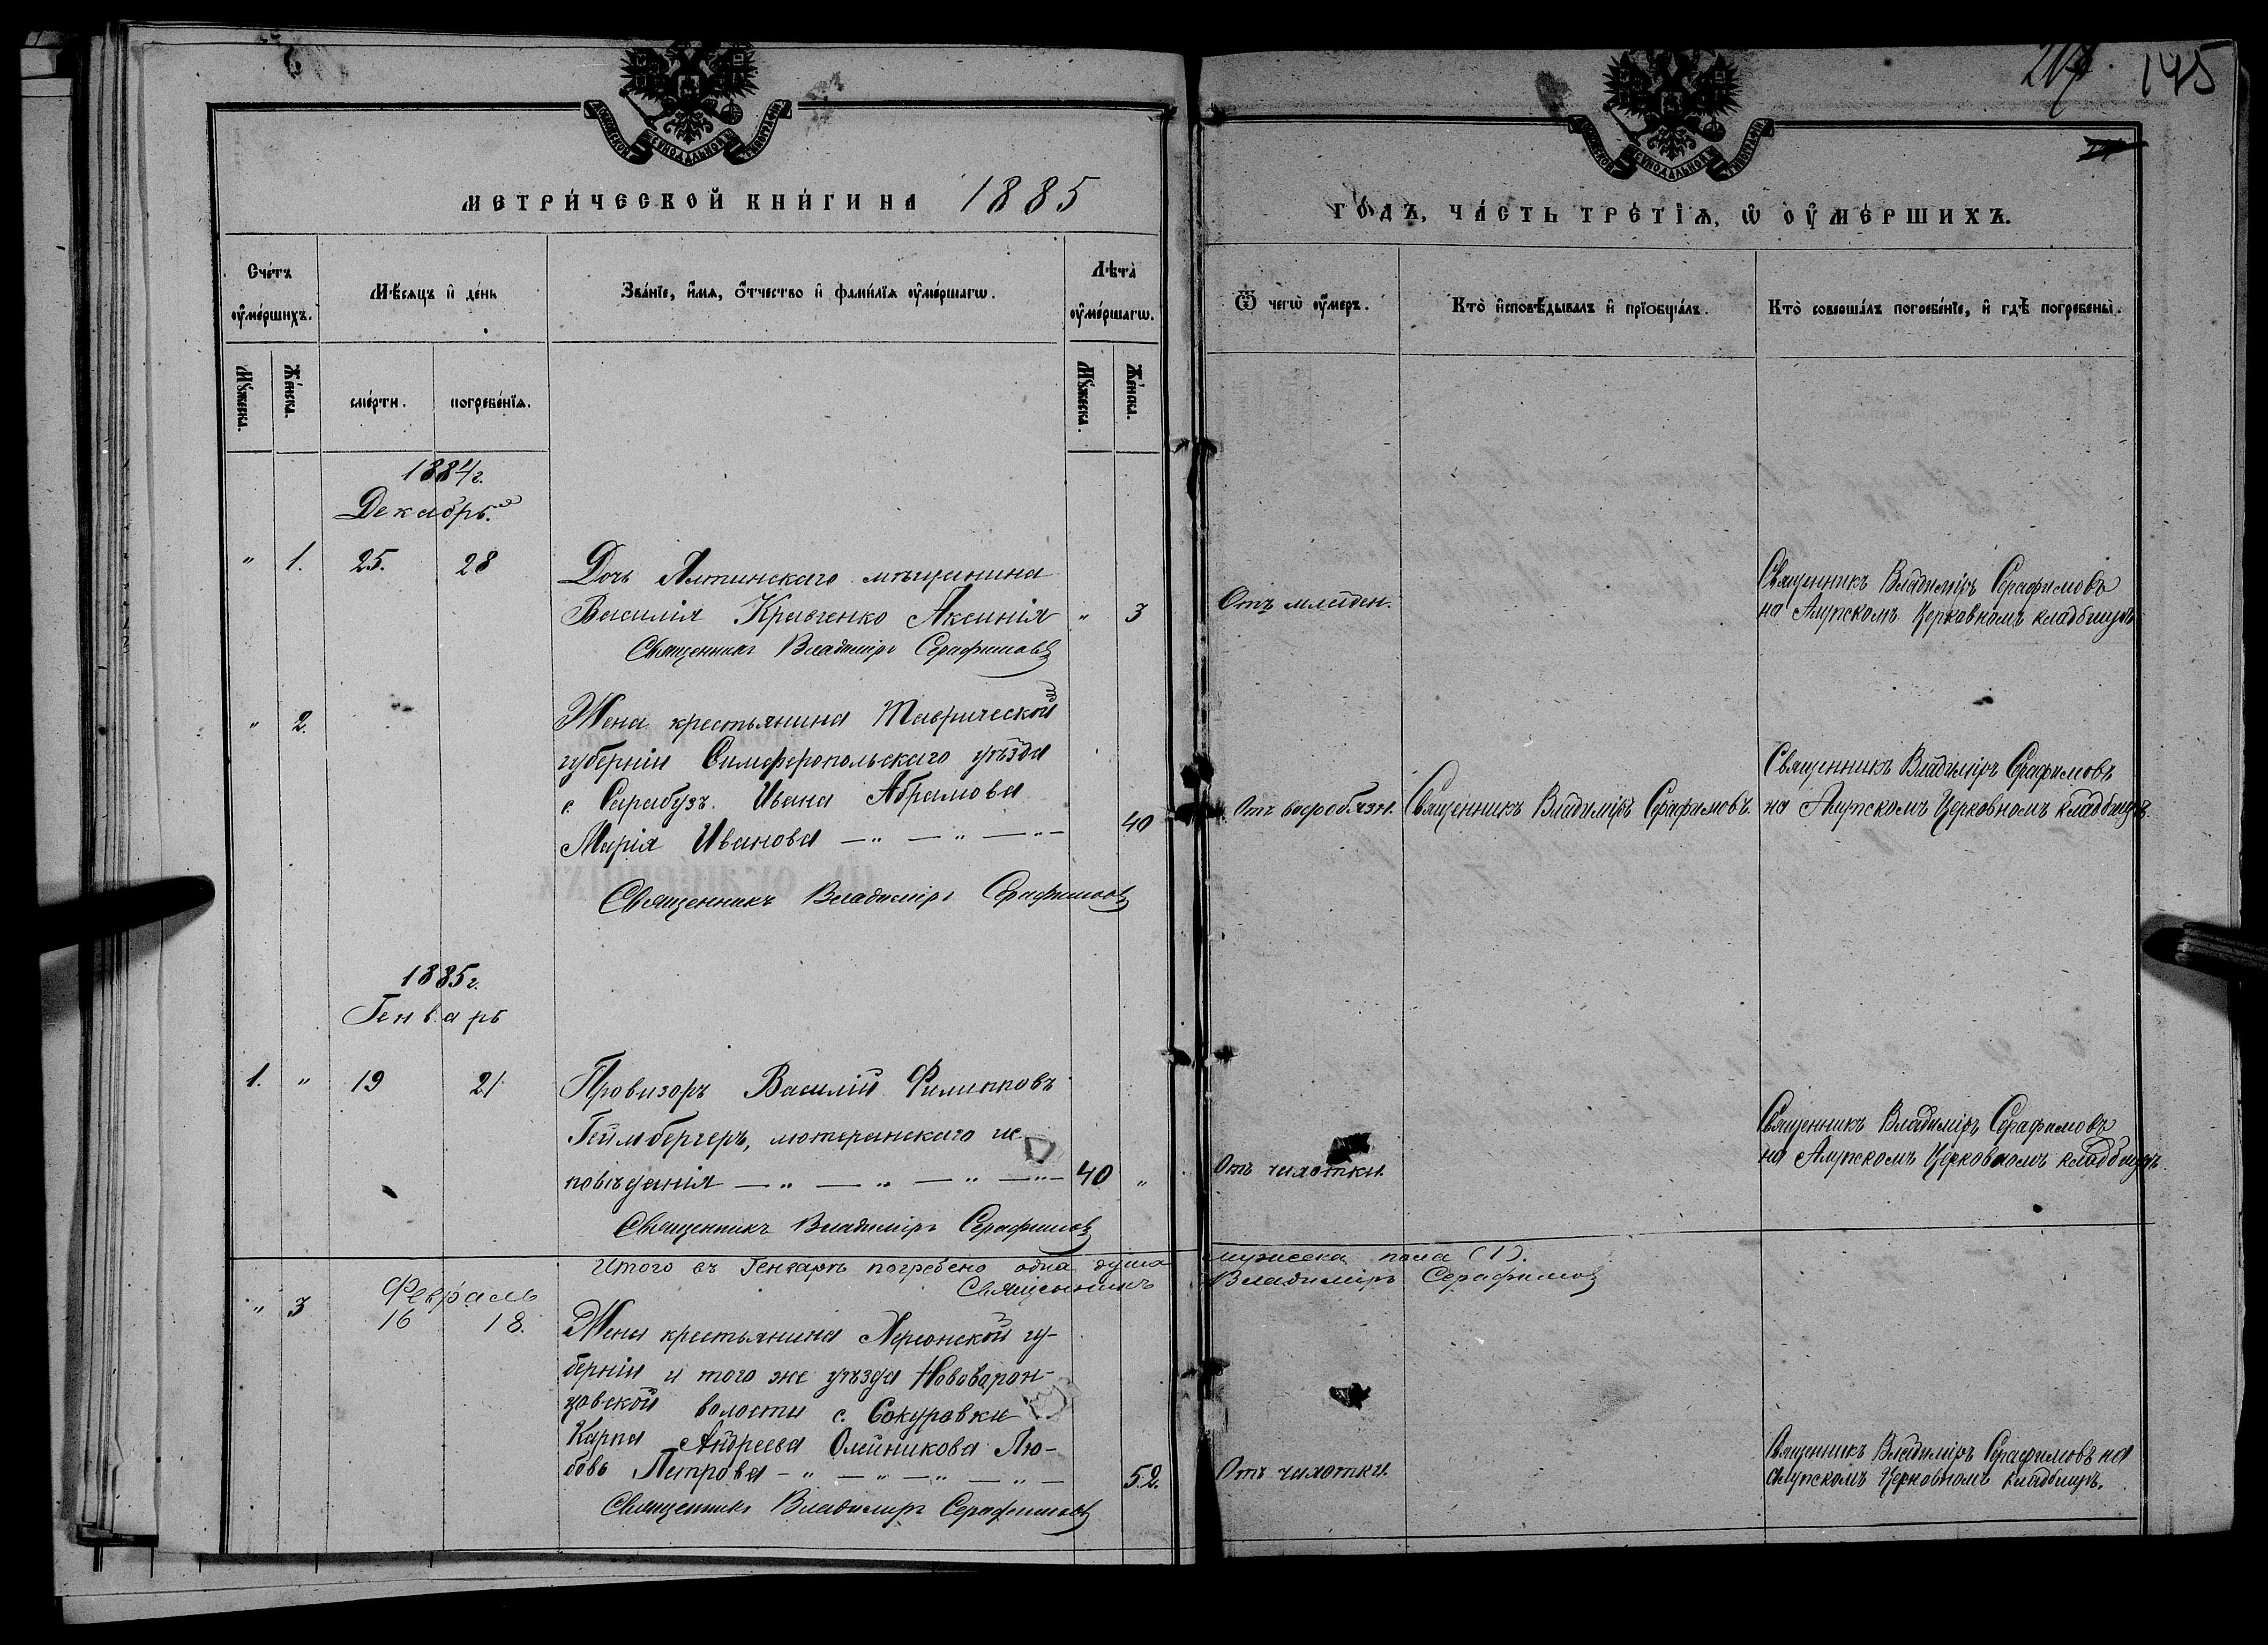 217. 145
МОСКОВСКОЙ СѴНОДАЛЬНОЙ ТИПОГРАФІИ
МОСКОВСКОЙ СѴНОДАЛЬНОЙ ТИПОГРАФІИ
МЕТРИ́ЧЕСКОЙ КНИ́ГИ НА 1885
ГО́ДЪ, ЧА́СТЬ ТРЕ́ТІѦ, Ѡ ОУ҆МЕ́РШИХЪ.
Сче́тъ оу҆ме́ршихъ.
Мѣ́сяцъ и҆ де́нь
Зва́нїе, и҆́мѧ, ѻ҆́тчество и҆ фами́лїѧ оу҆ме́ршагѡ.
Лѣ́та оу҆ме́ршагѡ.
Ѿ чегѡ̀ оу҆́меръ.
Кто̀ и҆сповѣ́дывалъ и҆ прїобща́лъ.
Кто̀ соверша́лъ погребе́нїе, и҆ гдѣ̀ погребены̀.
Мꙋ́жеска.
Же́нска.
сме́рти.
погребе́нїѧ.
Мꙋ́жеска.
Же́нска.
1884 г.
Декабрь.
" 1. 25. 28
Дочь Ялтинскаго мѣщанина
Василія Кравченко Аксинія " 3
Священникъ Владиміръ Серафимовъ
Отъ младен.
Священникъ Владиміръ Серафимовъ
на Алупскомъ Церковномъ кладбищѣ
" 2.
Жена крестьянина Таврической
губерніи Симферопольскаго уѣзда
с. Сарабузъ Ивана Абрамова
Марія Иванова — " — " — " — 40
Священникъ Владиміръ Серафимовъ
Священникъ Владиміръ Серафимовъ.
Священникъ Владиміръ Серафимовъ
на Алупскомъ Церковномъ кладбищѣ.
1885 г.
Генварь
1. " 19 21
Провизоръ Василій Филипповъ
Геймбергеръ, лютеранскаго ис
повѣданія — " — " — " — " — 40 "
Священникъ Владиміръ Серафимовъ
Отъ чахотки.
Священникъ Владиміръ Серафимовъ
на Алупскомъ Церковномъ кладбищѣ.
Итого въ Генварѣ погребено одна душа мужеска пола (1).
Священникъ Владиміръ Серафимовъ
Февраль
" 3 16 18.
Жена крестьянина Херсонской гу-
берніи и того же уѣзда Нововорон-
цовской волости с. Сокуровки
Карпа Андреева Олейникова Лю-
бовь Петрова — " — " — " — " — 52.
Священникъ Владиміръ Серафимовъ
Отъ чахотки.
Священникъ Владиміръ Серафимовъ на
Алупскомъ Церковномъ кладбищѣ.